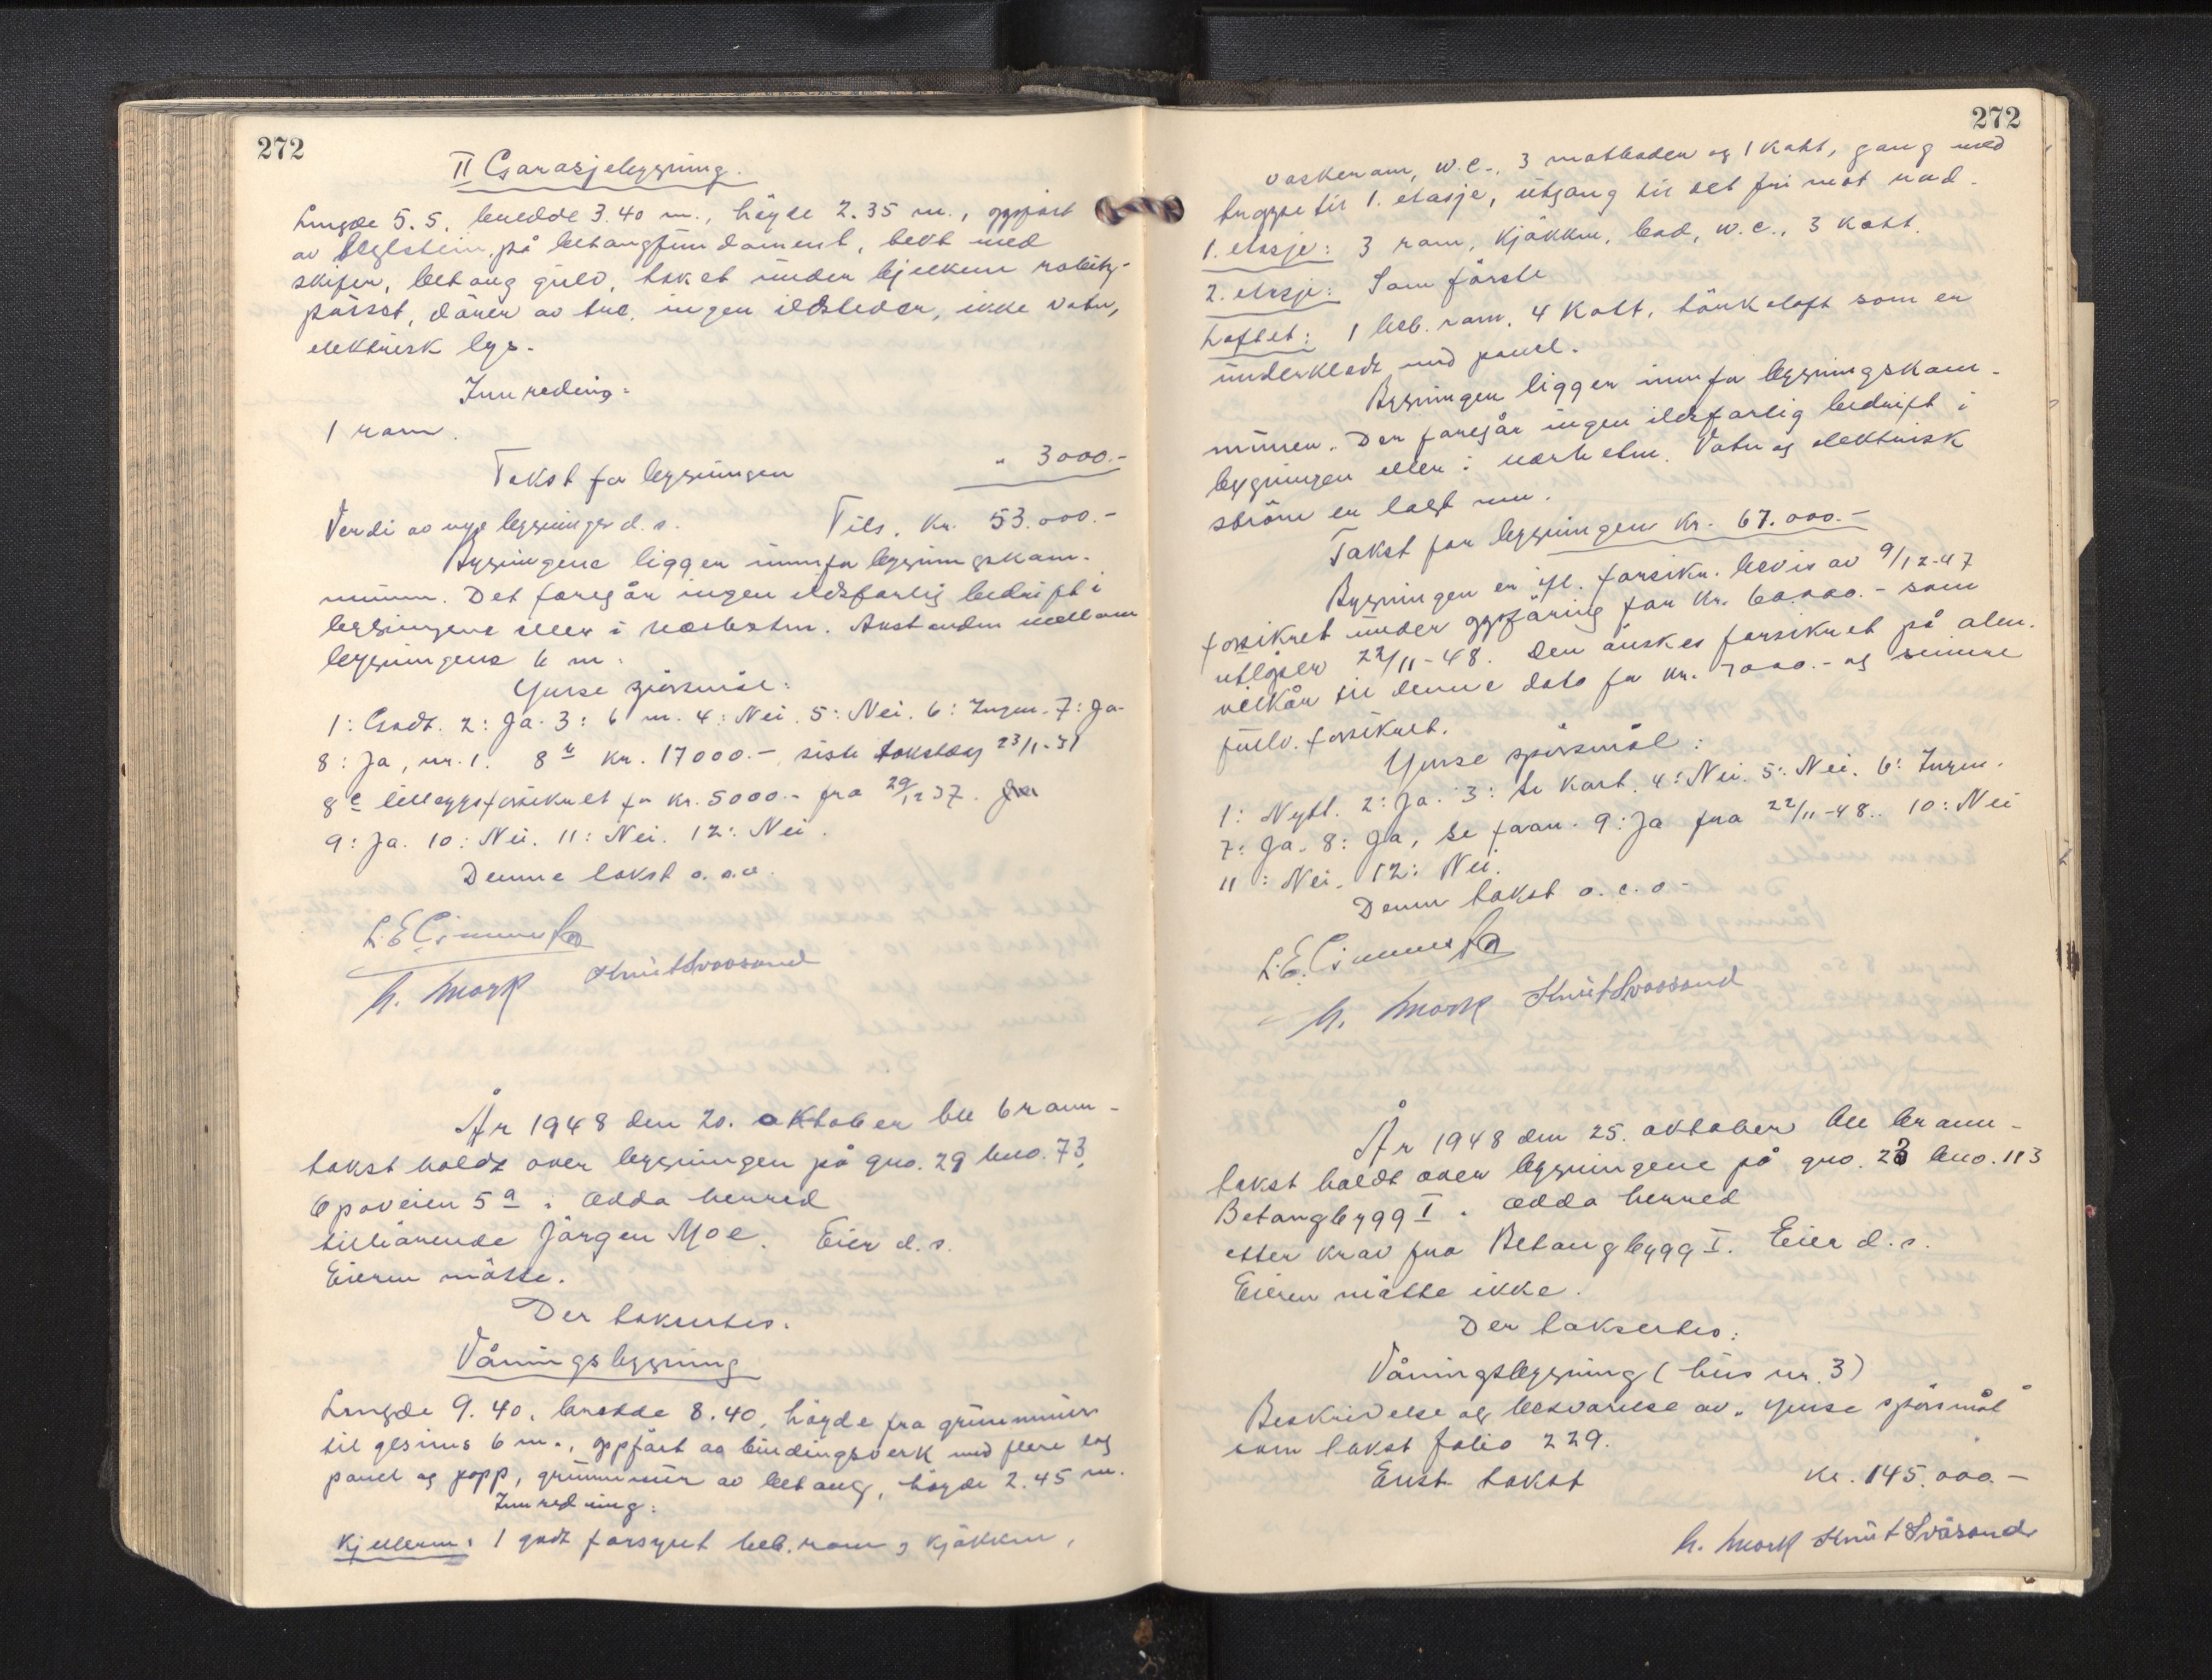 272
II Garasjebygning.
Lengde 5.5, bredde 3.40 m., høyde 2.35 m., oppført
av teglstein, på betongfundament, tekt med
skifer, betong gulv, taket under bjelkene rabitz-
pusset, dører av tre, ingen ildsteder, ikke vatn,
elektrisk lys.
Innreding:
1 rom.
Takst for bygningen " 3000.-
Verdi av nye bygninger d. s. Tils. kr. 53.000.-
Bygningene ligger innfor bygningskom-
munen. Det foregår ingen ildsfarlig bedrift i
bygningene eller i nærheten. Avstanden mellom
bygningene 6 m.
Ymse spörsmål:
1: Godt. 2: Ja. 3: 6 m. 4: Nei. 5: Nei. 6: Ingen. 7: Ja.
8: Ja, nr. 1. 8 kr. 17000.-, siste takstdag 23/1-31
8 c tilleggsforsikret for kr. 5000.- fra 29/12 37.
9: Ja. 10: Nei. 11: Nei. 12: Nei.
Denne takst o. s. v.
h. Mork Knut Svaasand
År 1948 den 20. oktober ble brann-
takst holdt over bygningen på gno. 29 bno. 73,
Opoveien 5 a i Odda herred
tilhörende Jörgen Moe. Eier d. s.
Eieren mötte.
Der taksertes.
Våningsbygning
Lengde 9.40, bredde 8.40, höyde fra grunnmur
til gesims 6 m., oppfört av bindingsverk med flere lag
panel og papp, grunnmur av betong, höyde 2.45 m.
Innredning:
Kjelleren: 1 godt forsynt beb. rom, kjökken,
272
vaskerom, w.c., 3 matboder og 1 kott, gang med
trappe til 1. etasje, utgang til det fri mot nord.
1. etasje: 3 rom, kjökken, bad, w.c., 3 kott.
2. etasje: Som förste
Loftet: 1 beb. rom, 4 kott, törkeloft som er
underkledt med panel.
Bygningen ligger innfor bygningskom-
munen. Der foregår ingen ildsfarlig bedrift i
bygningen eller i nærheten. Vatn og elektrisk
ström er lagt inn.
Takst for bygningen kr. 67.000.-
Bygningen er ifl. forsikr. bevis av 9/12-47
forsikret under oppföring for kr. 60.000.- som
utlöper 22/11-48. Den önskes forsikret på alm.
vilkår til denne dato for kr. 7000.- og seinere
fullv. forsikret.
Ymse spörsmål:
1: Nytt. 2: Ja. 3: Se kart. 4: Nei. 5: Nei. 6: Ingen.
7: Ja. 8: Ja, se foran. 9: Ja fra 22/11-48. 10: Nei
11: Nei. 12: Nei.
Denne takst o. s. v.
h. Mork Knut Svaasand
År 1948 den 25. oktober ble brann-
takst holdt over bygningene på gno. 23 bno. 113
Betongbygg I i Odda herred
etter krav fra Betongbygg I. Eier d. s.
Eieren mötte ikke.
Der taksertes:
Våningsbygning (hus nr. 3)
Beskrivelse og besvarelse av ymse spörsmål
som takst folio 229.
Enst. takst kr. 145.000.-
h. Mork Knut Svåsand